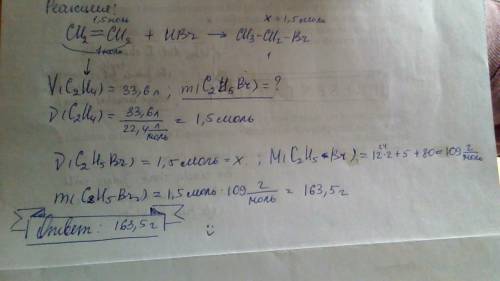 Реакция:
1,5 моль x = 1,5 моль
CH2=CH2 + HBr → CH3-CH2-Br
1 моль 1
↓
V(C2H4) = 33,6 л ; m(C2H5Br) = ?
ν(C2H4) = 33,6 л / 22,4 л/моль = 1,5 моль
ν(C2H5Br) = 1,5 моль = x ; M(C2H5Br) = 12·2 + 5 + 80 = 109 г/моль
24
m(C2H5Br) = 1,5 моль · 109 г/моль = 163,5 г
Ответ: 163,5 г